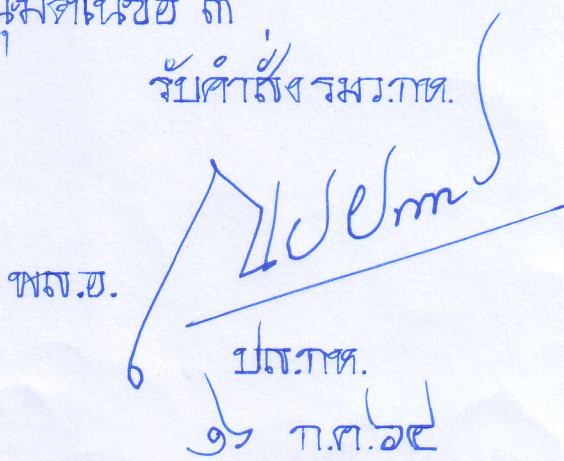 นุมัติในข้อ ๓
รับคำสั่ง รมว.กห.
พล.อ.
ปล.กห.
๑๖ ก.ค.๖๕